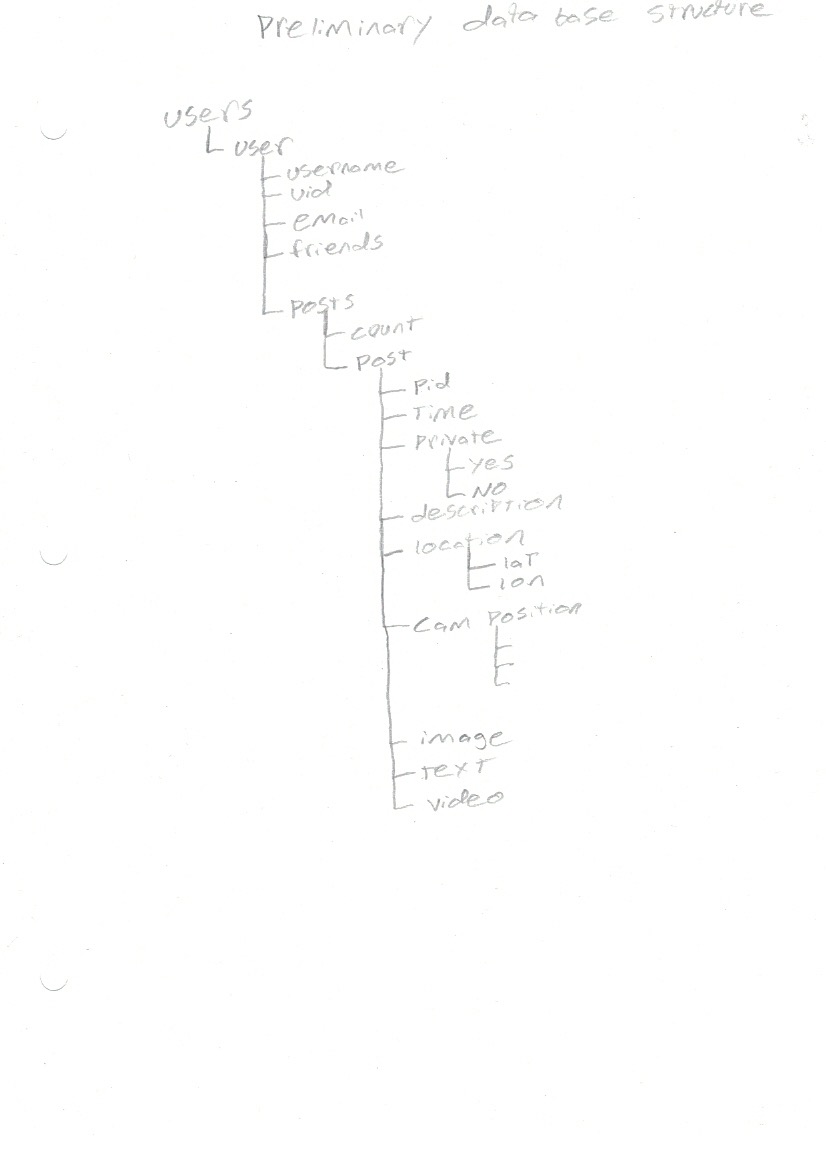 Preliminary data base structure
users
user
username
uid
email
friends
posts
count
post
pid
Time
private
yes
NO
description
location
lat
lon
Cam position
image
text
video